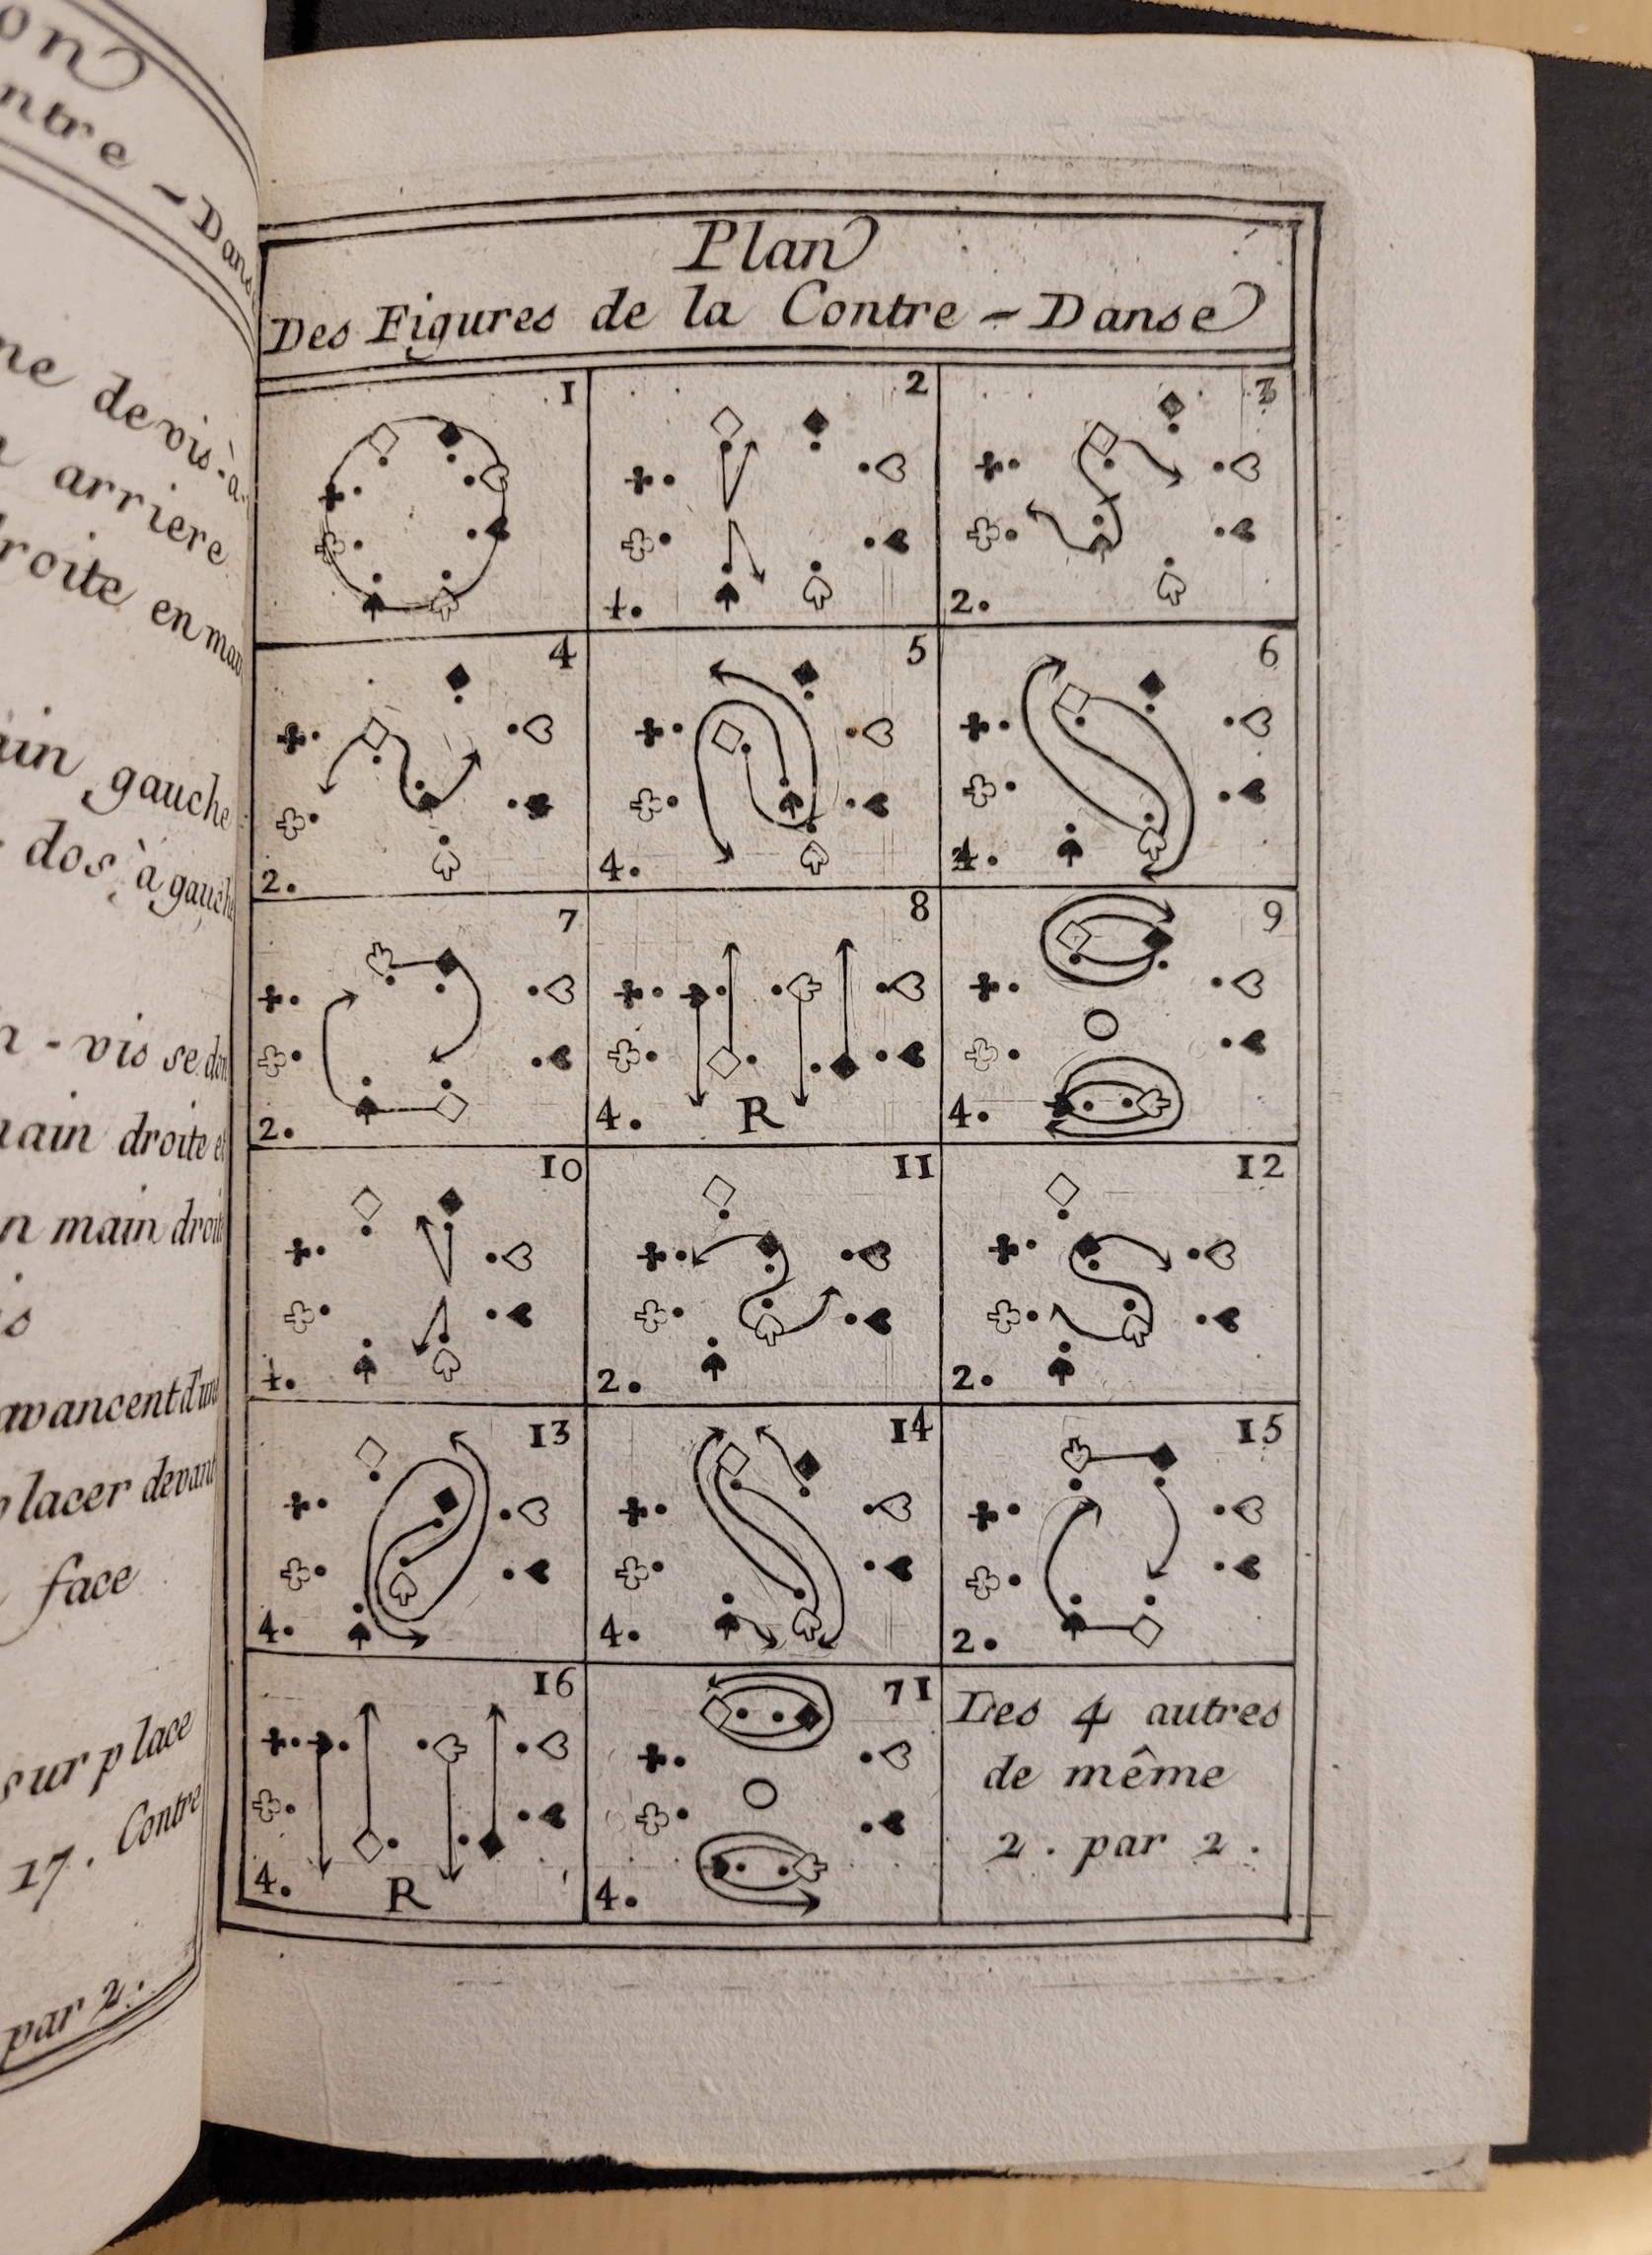 ntre - Dans
ne de vis-à-
arriere
droite en main
ain gauche
dos, à gauche
- vis se don
main droite et
n main droite
avancent d'une
placer devant
face
sur place
17. Contre
par 2.
Plan
Des Figures de la Contre - Danse
1
2
1.
3
2.
4
2.
5
4.
6
4.
7
2.
8
4. R
9
4.
10
1.
11
2.
12
2.
13
4.
14
4.
15
2.
16
4. R
71
4.
Les 4 autres
de même
2 . par 2 .